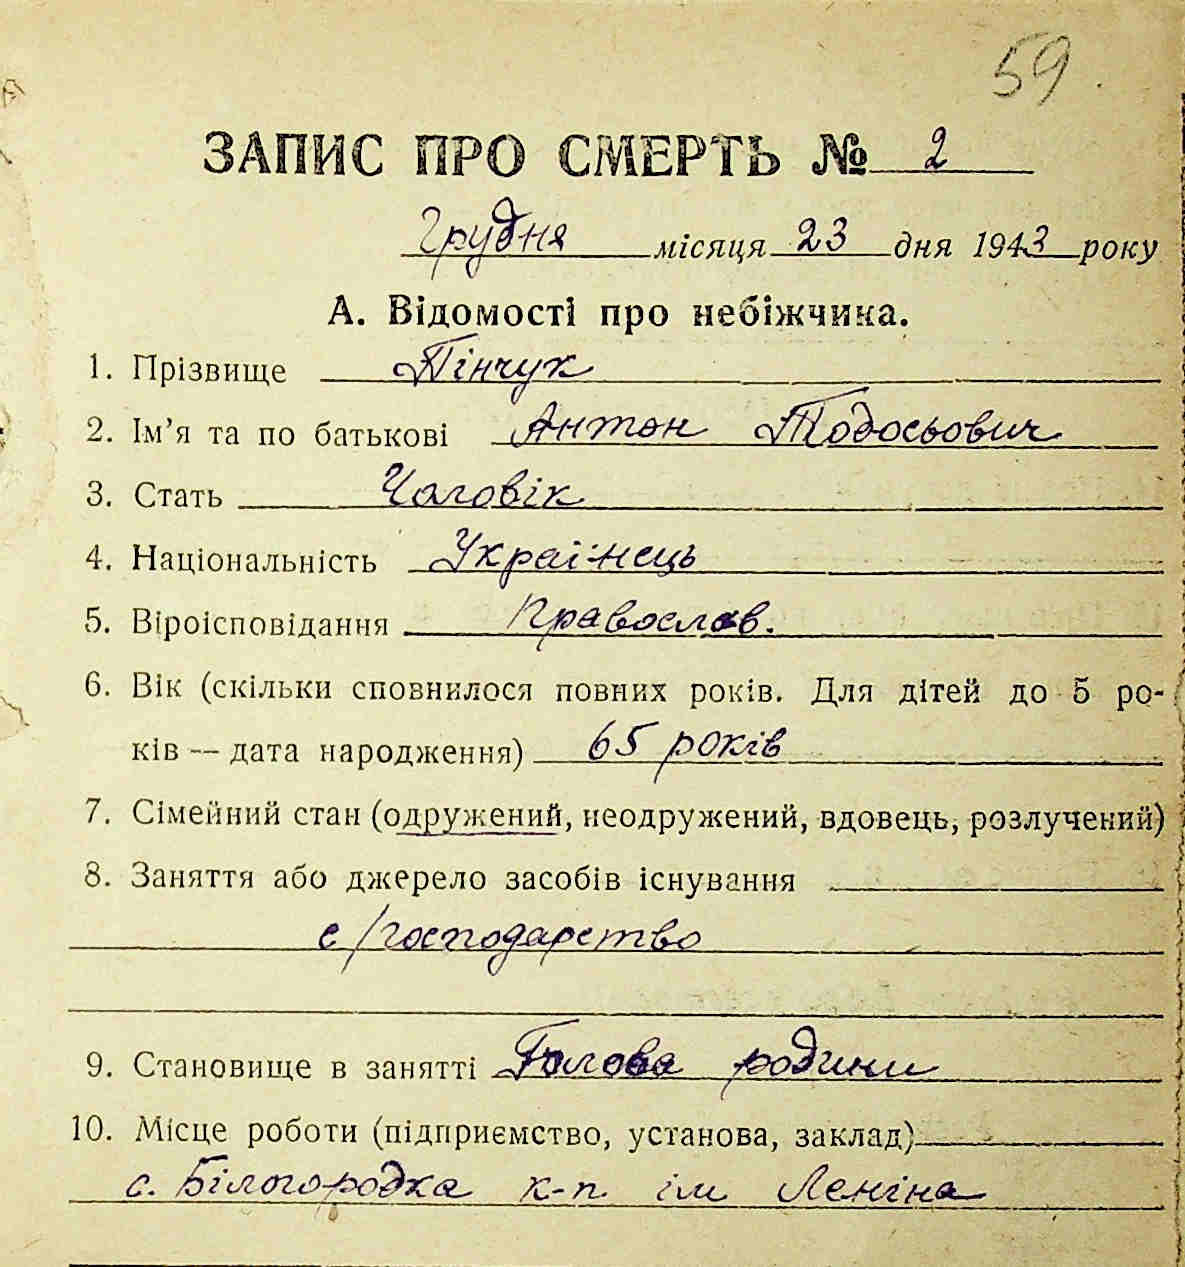 59
ЗАПИС ПРО СМЕРТЬ № 2
Грудня місяця 23 дня 1943 року
А. Відомості про небіжчика.
1. Прізвище Пінчук
2. Ім’я та по батькові Антон Тодосьович
3. Стать Чоловік
4. Національність Українець
5. Віроісповідання Православ.
6. Вік (скільки сповнилося повних років. Для дітей до 5 ро-
ків — дата народження) 65 років
7. Сімейний стан (одружений, неодружений, вдовець, розлучений)
8. Заняття або джерело засобів існування
с/господарство
9. Становище в занятті Голова родини
10. Місце роботи (підприємство, установа, заклад)
с. Білогородка к-п ім Леніна